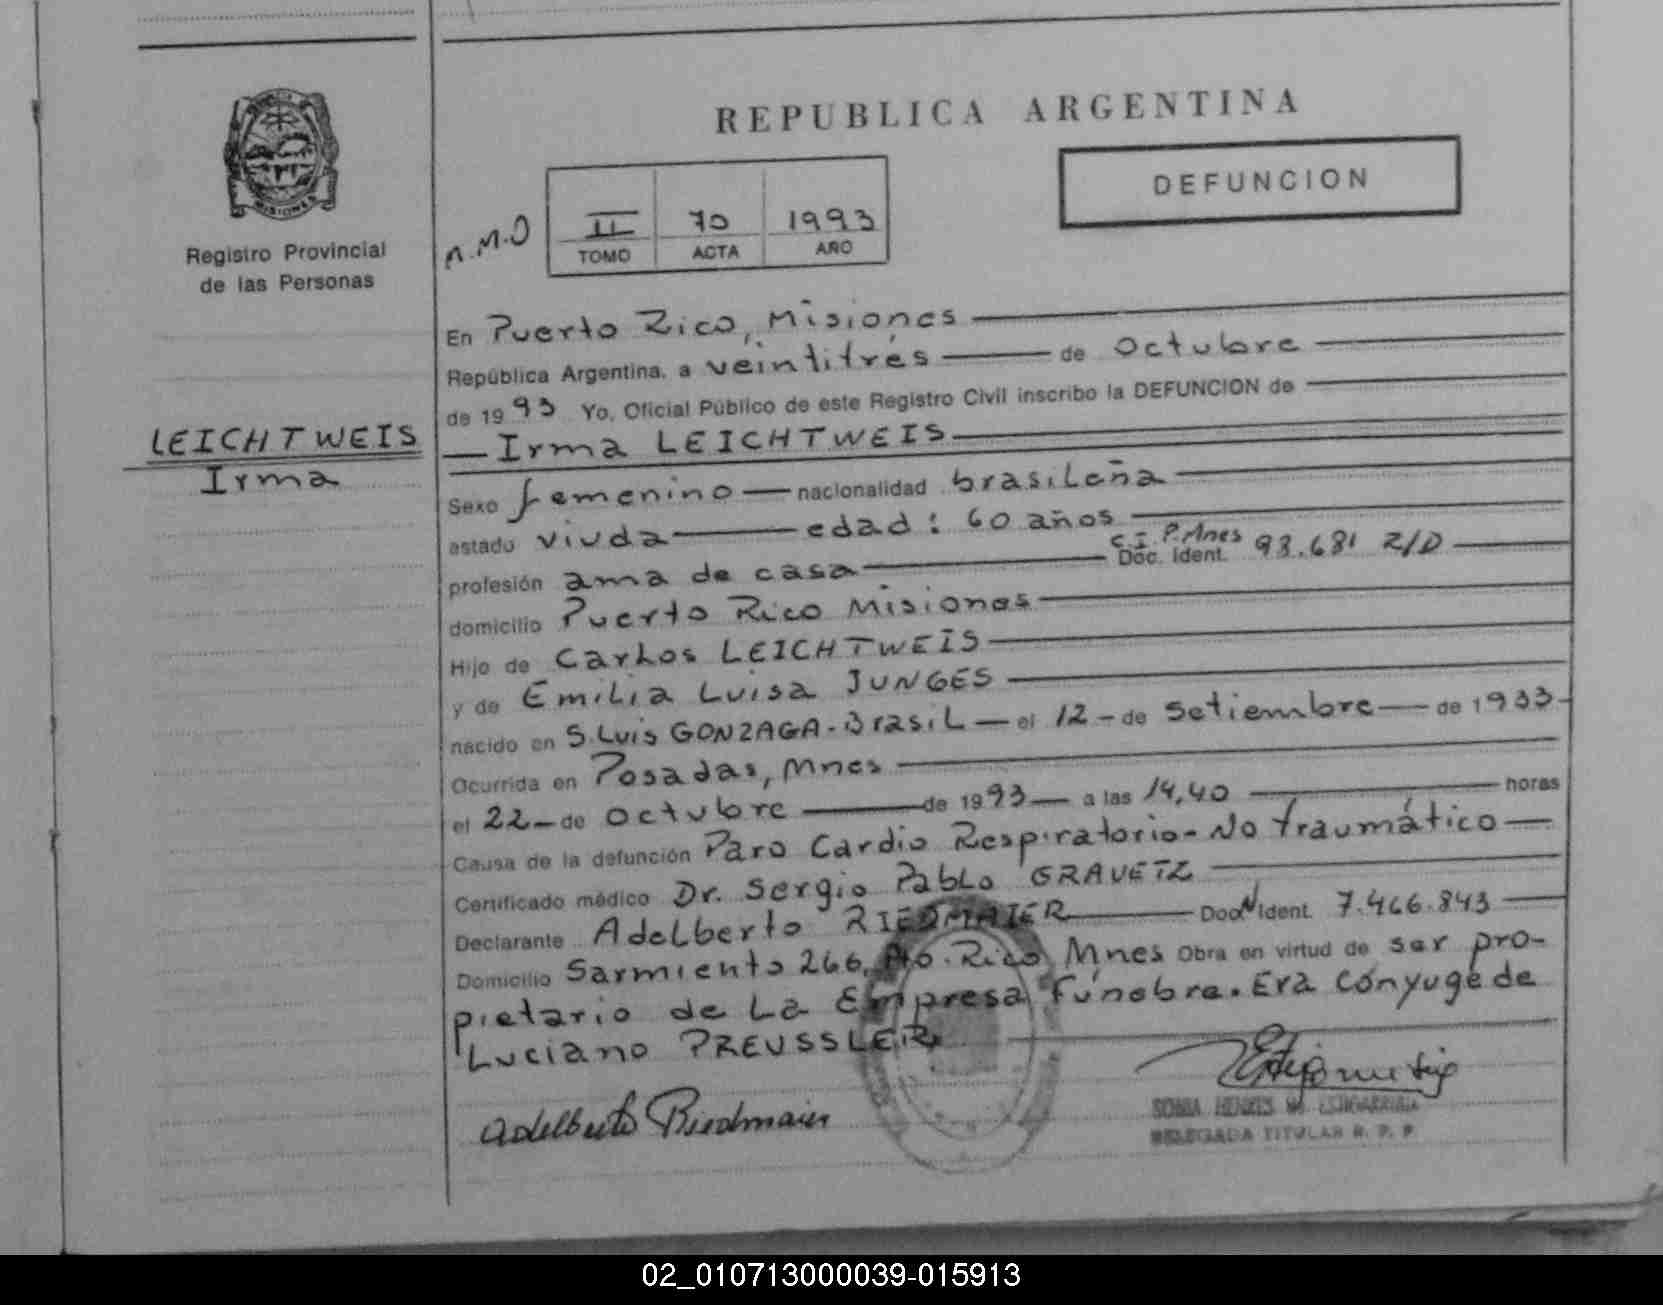 REPUBLICA ARGENTINA
DEFUNCION
MISIONES
Registro Provincial
de las Personas
A.M.D
II 70 1993
TOMO ACTA AÑO
En Puerto Rico, Misiones
República Argentina, a veintitrés de octubre
de 1993 Yo, Oficial Público de este Registro Civil inscribo la DEFUNCION de
LEICHTWEIS
Irma
Irma LEICHTWEIS
Sexo femenino nacionalidad brasileña
estado viuda edad: 60 años
C.I P.Mnes
profesión ama de casa Doc. Ident. 93.681 Z/D
domicilio Puerto Rico Misiones
Hijo de Carlos LEICHTWEIS
y de Emilia Luisa JUNGES
nacido en S.Luis GONZAGA-Brasil el 12 de Setiembre de 1933
Ocurrida en Posadas, Mnes
el 22 de octubre de 1993 a las 14,40 horas
Causa de la defunción Paro Cardio Respiratorio-No traumático
Certificado médico Dr. Sergio Pablo
Declarante Adelberto RIEDMAIER Doc. Ident. 7.466.843
Domicilio Sarmiento 266, Pto. Rico Mnes Obra en virtud de ser pro-
pietario de la Empresa Fúnebre. Era cónyuge de
Luciano PREUSSLER
Adelberto Riedmaier
SONIA
DELEGADA TITULAR R. P. P.
02_010713000039-015913